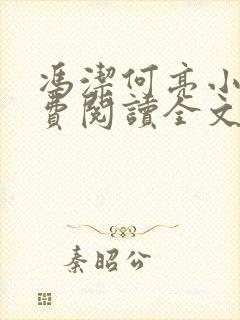 馮潔何亮小
費閱讀全文
秦昭公